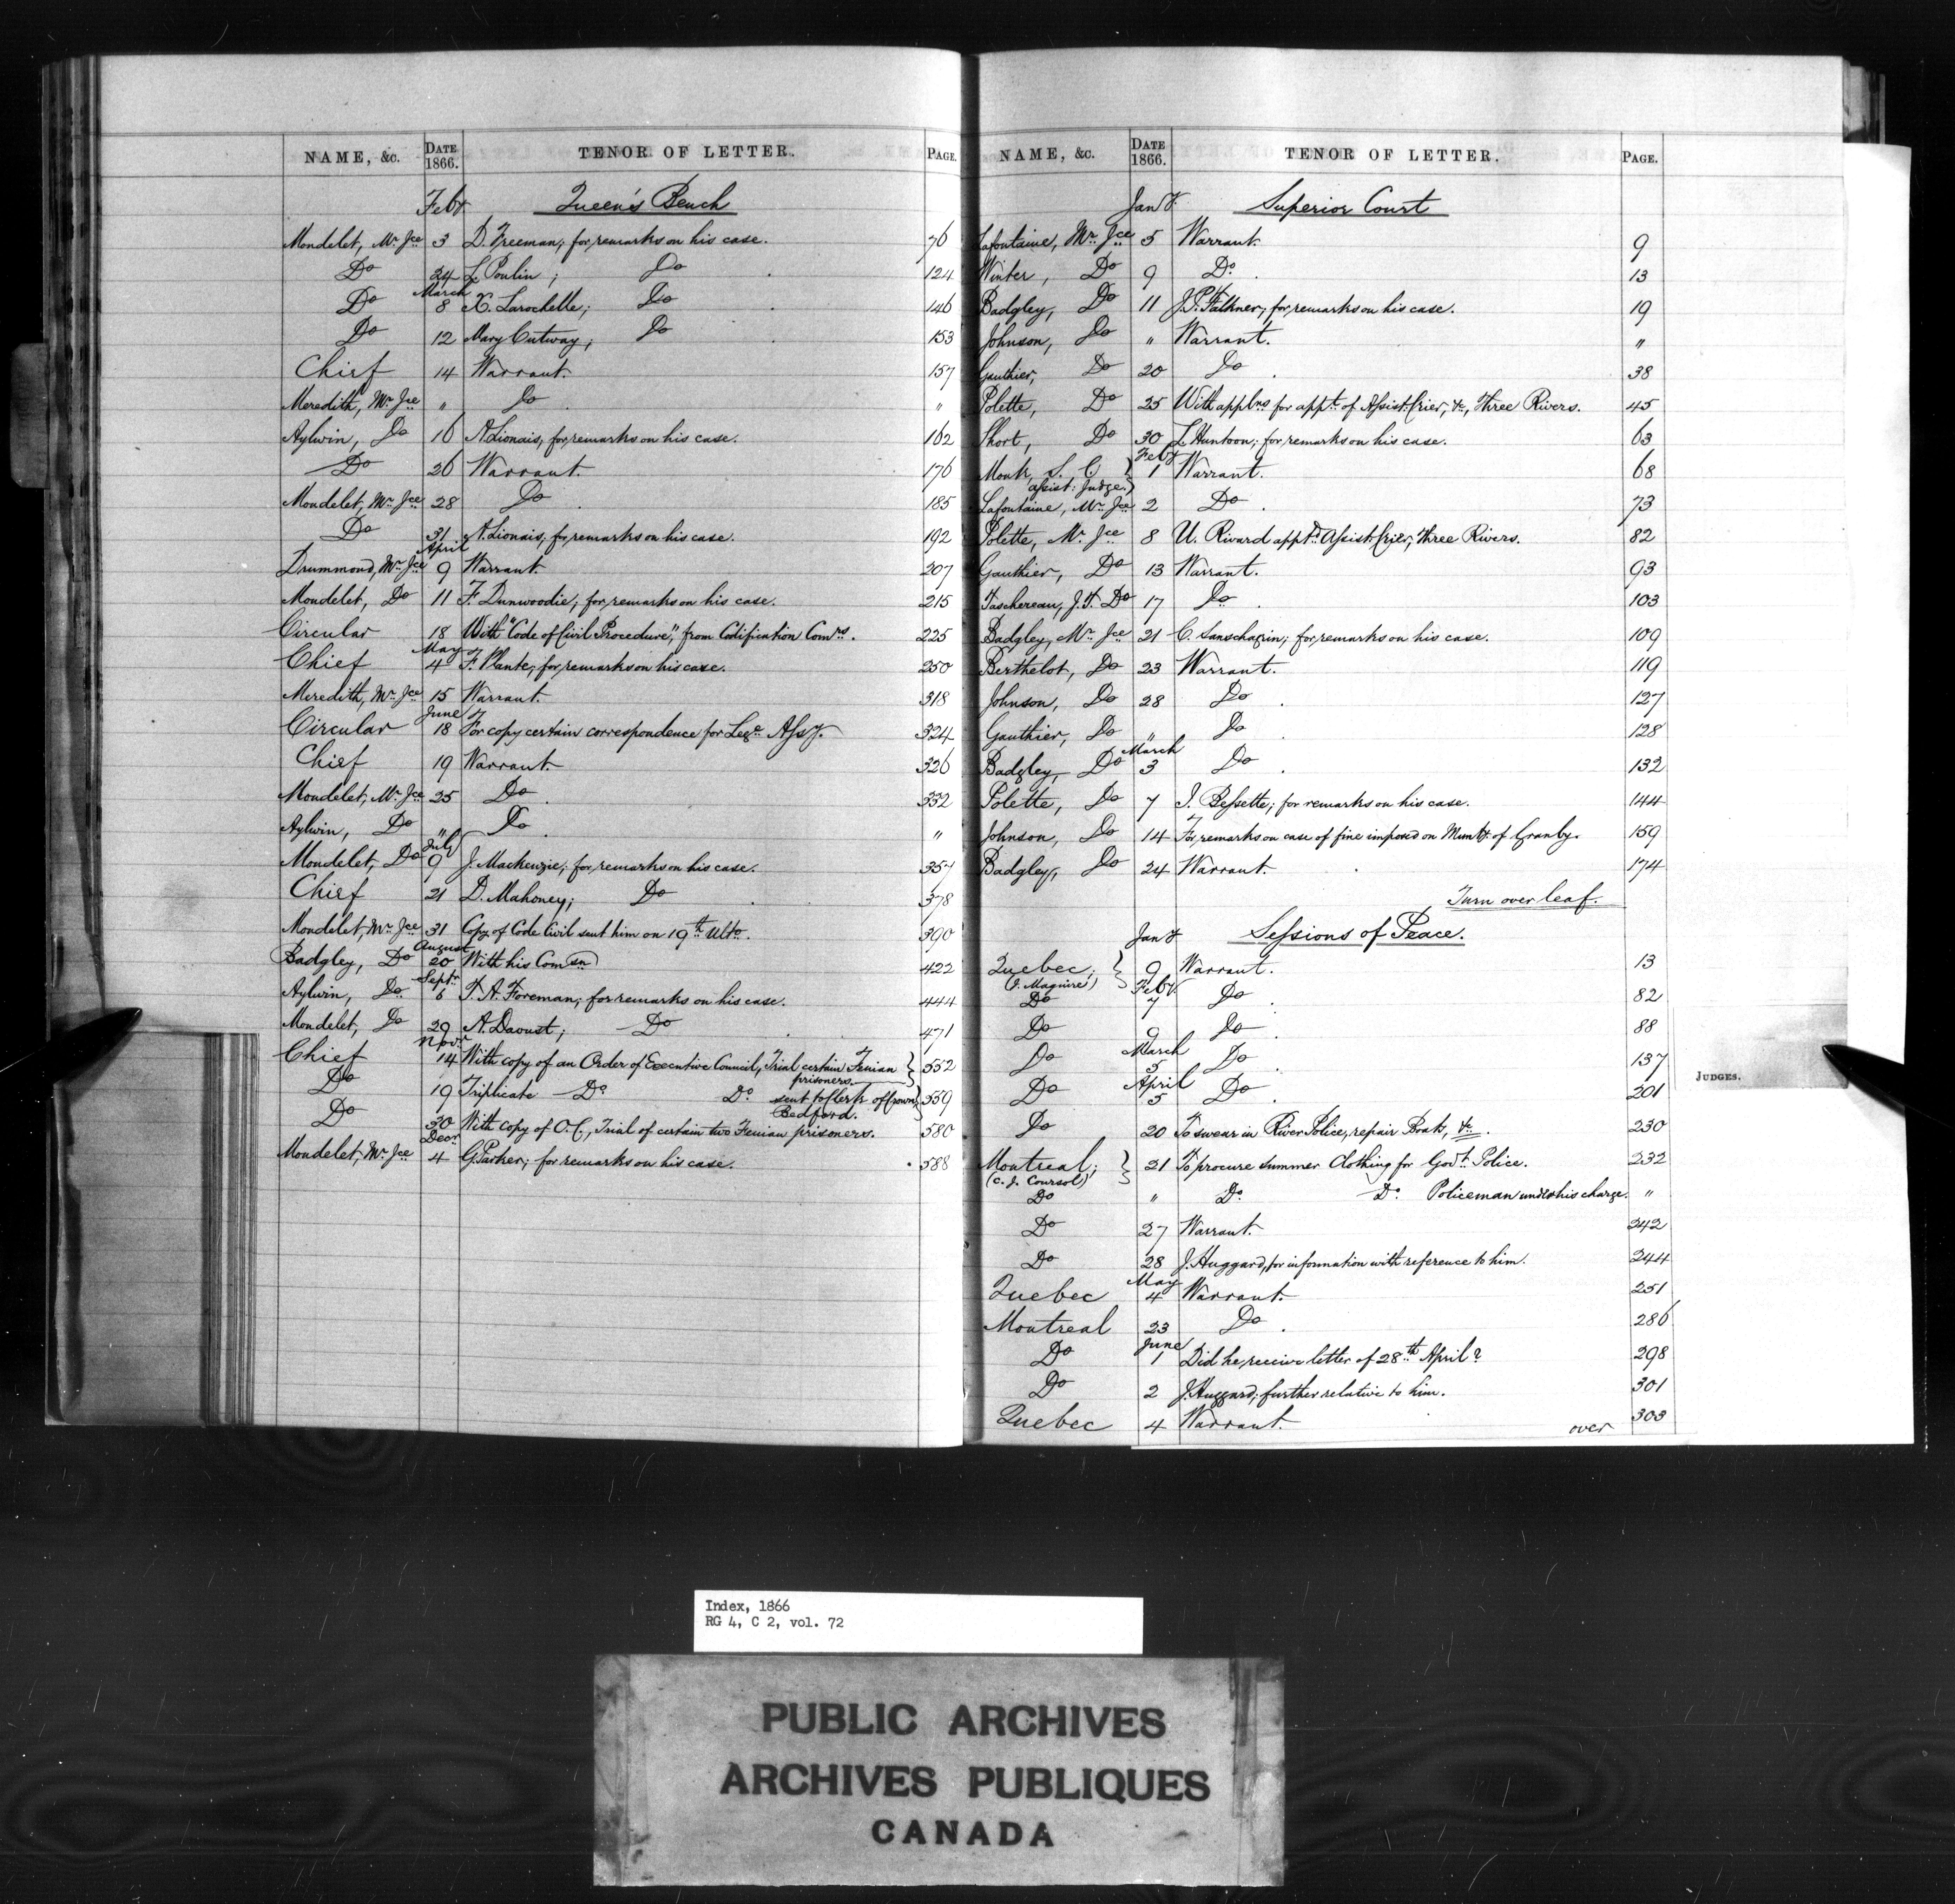 NAME, &c. DATE 1866. TENOR OF LETTER. PAGE.
Feby. Queen's Bench
Mondelet, Mr. Jce 3 D. Freeman; for remarks on his case. 76
Do 24 L. Poulin; Do 124
March
Do 8 X. Larochelle; Do 146
Do 12 Mary Cutway; Do 153
Chief 14 Warrant. 157
Meredith, Mr. Jce " Do. "
Aylwin, Do 16 A. Lionais, for remarks on his case. 162
Do 26 Warrant. 176
Mondelet, Mr. Jce 28 Do. 185
Do 31 A. Lionais, for remarks on his case. 192
April
Drummond, Mr. Jce 9 Warrant. 207
Mondelet, Do 11 F. Dunwoodie; for remarks on his case. 215
Circular 18 With "Code of Civil Procedure", from Codification Comrs. 225
May
Chief 4 F. Plante; for remarks on his case. 250
Meredith, Mr. Jce 15 Warrant. 318
June
Circular 18 For copy certain correspondence for Lege. Assy. 324
Chief 19 Warrant. 326
Mondelet, Mr. Jce 25 Do. 332
Aylwin, Do " Do. "
July
Mondelet, Do 9 J. Mackenzie; for remarks on his case. 357
Chief 21 D. Mahoney; Do. 378
Mondelet, Mr. Jce 31 Copy of Code Civil sent him on 19th Ulto. 390
August
Badgley, Do 20 With his Comsn 422
Septr.
Aylwin, Do 6 T. A. Foreman; for remarks on his case. 444
Mondelet, Do 29 A. Daoust; Do 471
Novr.
Chief 14 With copy of an Order of Executive Council, Trial certain Fenian prisoners. 552
Do 19 Triplicate Do Do sent to Clerk of Crown, Bedford. 559
Do 30 With copy of O.C., Trial of certain two Fenian prisoners. 580
Decr.
Mondelet, Mr. Jce 4 G. Parker; for remarks on his case. 588
NAME, &c. DATE 1866. TENOR OF LETTER. PAGE.
Jany. Superior Court
Lafontaine, Mr. Jce 5 Warrant. 9
Winter, Do 9 Do. 13
Badgley, Do 11 J. P. Falkner; for remarks on his case. 19
Johnson, Do " Warrant. "
Gauthier, Do 20 Do. 38
Polette, Do 25 With applns for appt. of Assist. Crier, &c, Three Rivers. 45
Short, Do 30 L. Huntoon; for remarks on his case. 63
Feby
Monk, S. C. } 1 Warrant. 68
assist: Judge.)
Lafontaine, Mr. Jce 2 Do. 73
Polette, Mr. Jce 8 U. Rivard apptd. Assist. Crier, Three Rivers. 82
Gauthier, Do 13 Warrant. 93
Taschereau, J. T. Do 17 Do. 103
Badgley, Mr. Jce 21 C. Sanschagrin; for remarks on his case. 109
Berthelot, Do 23 Warrant. 119
Johnson, Do 28 Do. 127
Gauthier, Do " Do 128
March
Badgley, Do 3 Do. 132
Polette, Do 7 J. Bessette; for remarks on his case. 144
Johnson, Do 14 For remarks on case of fine imposed on Munty. of Granby. 159
Badgley, Do 24 Warrant. 174
Turn over leaf.
Jany Sessions of Peace.
Quebec; } 9 Warrant. 13
(J. Maguire)
Feby.
Do 7 Do. 82
Do 9 Do. 88
March
Do 5 Do. 137
April
Do 5 Do. 201
Do 20 To swear in River Police, repair Boats, &c. 230
Montreal; } 21 To procure summer Clothing for Govt. Police. 232
(C. J. Coursol)
Do " Do. Do. Policeman under his charge. "
Do 27 Warrant. 242
Do 28 J. Huggard, for information with reference to him. 244
May
Quebec 4 Warrant. 251
Montreal 23 Do. 286
June
Do 1 Did he receive letter of 28th April? 298
Do 2 J. Huggard; further relative to him. 301
Quebec 4 Warrant. 303
over
JUDGES.
Index, 1866
RG 4, C 2, vol. 72
PUBLIC ARCHIVES
ARCHIVES PUBLIQUES
CANADA